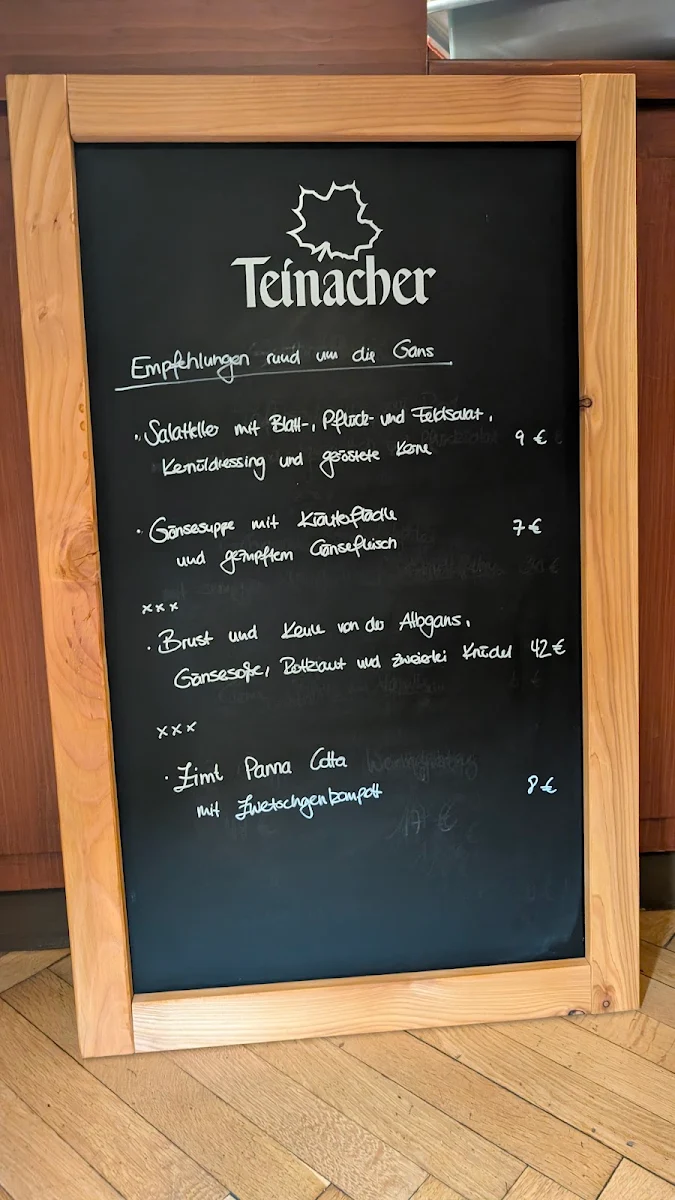 Teinacher
Empfehlungen rund um die Gans
· Salatteller mit Blatt-, Pflück- und Feldsalat,
Kernöldressing und geröstete Kerne 9 €
· Gänsesuppe mit Kräuterflädle 7 €
und gezupftem Gänsefleisch
xxx
· Brust und Keule von der Albgans,
Gänsesoße, Rotkraut und zweierlei Knödel 42 €
xxx
· Zimt Panna Cotta
mit Zwetschgenkompott 8 €